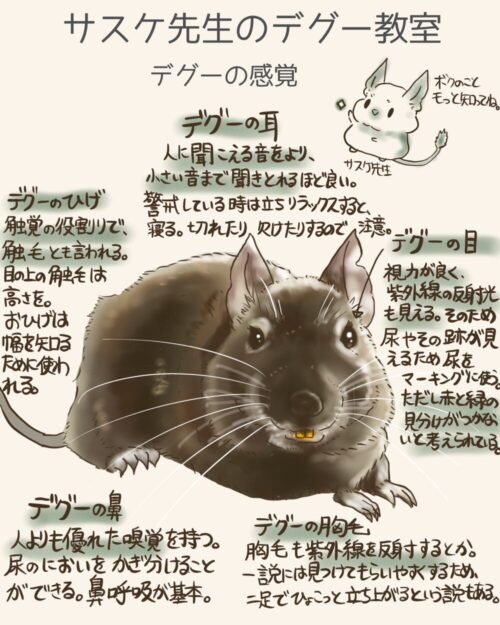 サスケ先生のデグー教室
デグーの感覚
ボクのこと
もっと知ってね。
サスケ先生
デグーの耳
人に聞こえる音をより、
小さい音まで聞きとれるほど良い。
警戒している時は立ちリラックスすると、
寝る。切れたり、欠けたりするので注意。
デグーのひげ
触覚の役割りで、
触毛とも言われる。
目の上の触毛は
高さを。
おひげは
幅を知る
ために使わ
れる。
デグーの目
視力が良く、
紫外線の反射光
も見える。そのため
尿やその跡が見
えるため尿を
マーキングに使う。
ただし赤と緑の
見分けがつかな
いと考えられている。
デグーの鼻
人よりも優れた嗅覚を持つ。
尿のにおいをかぎ分けること
ができる。鼻呼吸が基本。
デグーの胸毛
胸毛も紫外線を反射するとか。
一説には見つけてもらいやすくするため、
二足でひょこっと立ち上がるという説もある。